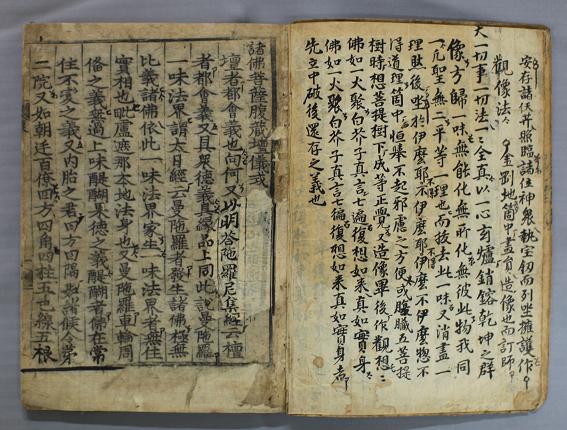 安存諸佚并照臨諸位神眾執宝初而列坐擁護作
觀像法 金剛地箇中盡貟造像也而訂師
大一切事一切法一全真以一心玄炉鎔乾坤之群
像方歸一味無能化無所化無彼此物我同
一凡聖無二平等一理也而故去此一味又消盡一
理肰後坐於伊麼耶不伊麼耶伊麼不伊麼惣不
得道理箇中恒舉不起邪慮之方便或臓五菩提
樹時想菩提樹下成等正覺又造像畢後作觀想
佛如一火聚白芥子真言七遍復想如来真如實身者
佛如一火聚白芥子真言七徧復想如来真如實身
先立中破後還存之義也
諸佛菩薩腹藏壇儀或
壇者都會義也向何又以明答陁羅尼集經云壇
者都會義又具眾德義具縁品上同此說曼陁羅
一味法界謂大日經云曼陁羅者發生諸佛極無
比義諸佛依此一味法界家生一味法界者無住
實相也毗盧遮那本地法身也又曼陁羅車輪周
俻之義無過上味醍醐来德之義醍醐者佛在常
住不变之義又内胎之君四方四隅如諸候令第
二院又如朝廷百僚四方四角四柱五色線五根